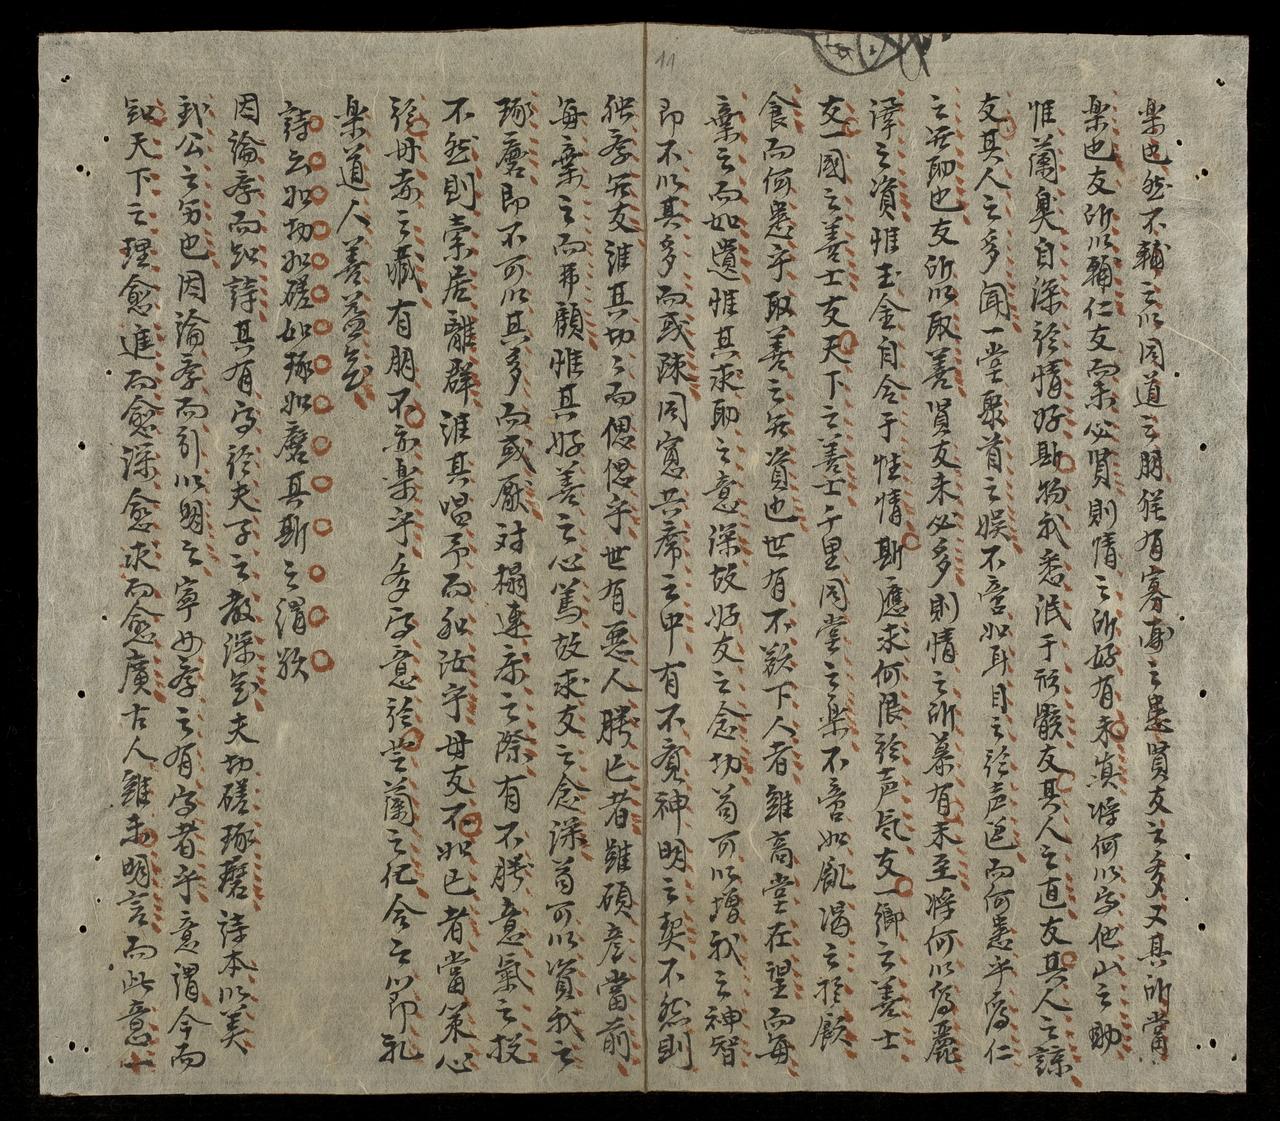 樂也然不輔之以同道之朋猶有寡陋之患賢友之多又其所當
樂也友所以輔仁友而未必賢則情之所好有未眞將何以字他山之助
惟蘭臭自深於情好斯物我悉泯于形骸友其人之直友其人之諒
友其人之多聞一堂聚首之娛不啻如耳目之於声色而何患乎爲仁
之無助也友所以取善賢友未必多則情之所慕有未至將何以爲麗
澤之資惟玉金自合于性情斯應求何限於声氣友一鄉之善士
友一國之善士友天下之善士千里同堂之樂不啻如飢渴之於飲
食而何患乎取善之無資也世有不欲下人者雖高堂在望而每
棄之而如遺惟其求助之意深故好友之念切苟可以增我之神智
即不以其多而或踈同窓共席之中有不寬神明之契不然則
独學無友誰其切之而偲偲乎世有惡人勝己者雖碩彥當前
每棄之而弗顧惟其好善之心篤故求友之念深苟可以資我之
琢磨即不可以其多而或厭対榻連床之際有不勝意氣之投
不然則索居離群誰其唱予而和汝乎毋友不如己者當策心
於毋意之藏有朋不亦樂乎多字意於芝蘭之化合之以即礼
樂道人善益矣
詩云如切如磋如琢如磨其斯之謂欤
因論學而知詩其有字於夫子之教深矣夫切磋琢磨詩本以美
武公之字也因論學而引以明之寧毋學之有字者乎意謂今而
知天下之理愈進而愈深愈求而愈廣古人雖未明言而此意十
11